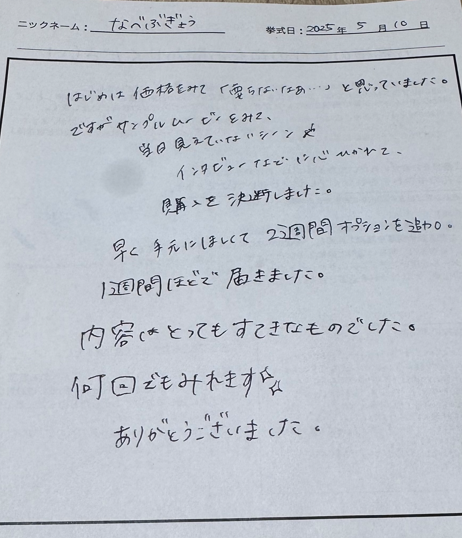 ニックネーム： なべぶぎょう 挙式日：2025年 5月10日
はじめは 価格をみて「要らないなあ…」と思っていました。
ですが サンプルムービーをみて、
当日見えていないシーンや
インタビューなどに心ひかれて、
購入を決断しました。
早く手元にほしくて 2週間オプションを追加。
1週間ほどで 届きました。
内容はとってもすてきなものでした。
何回でもみれます☆☆
ありがとうございました。